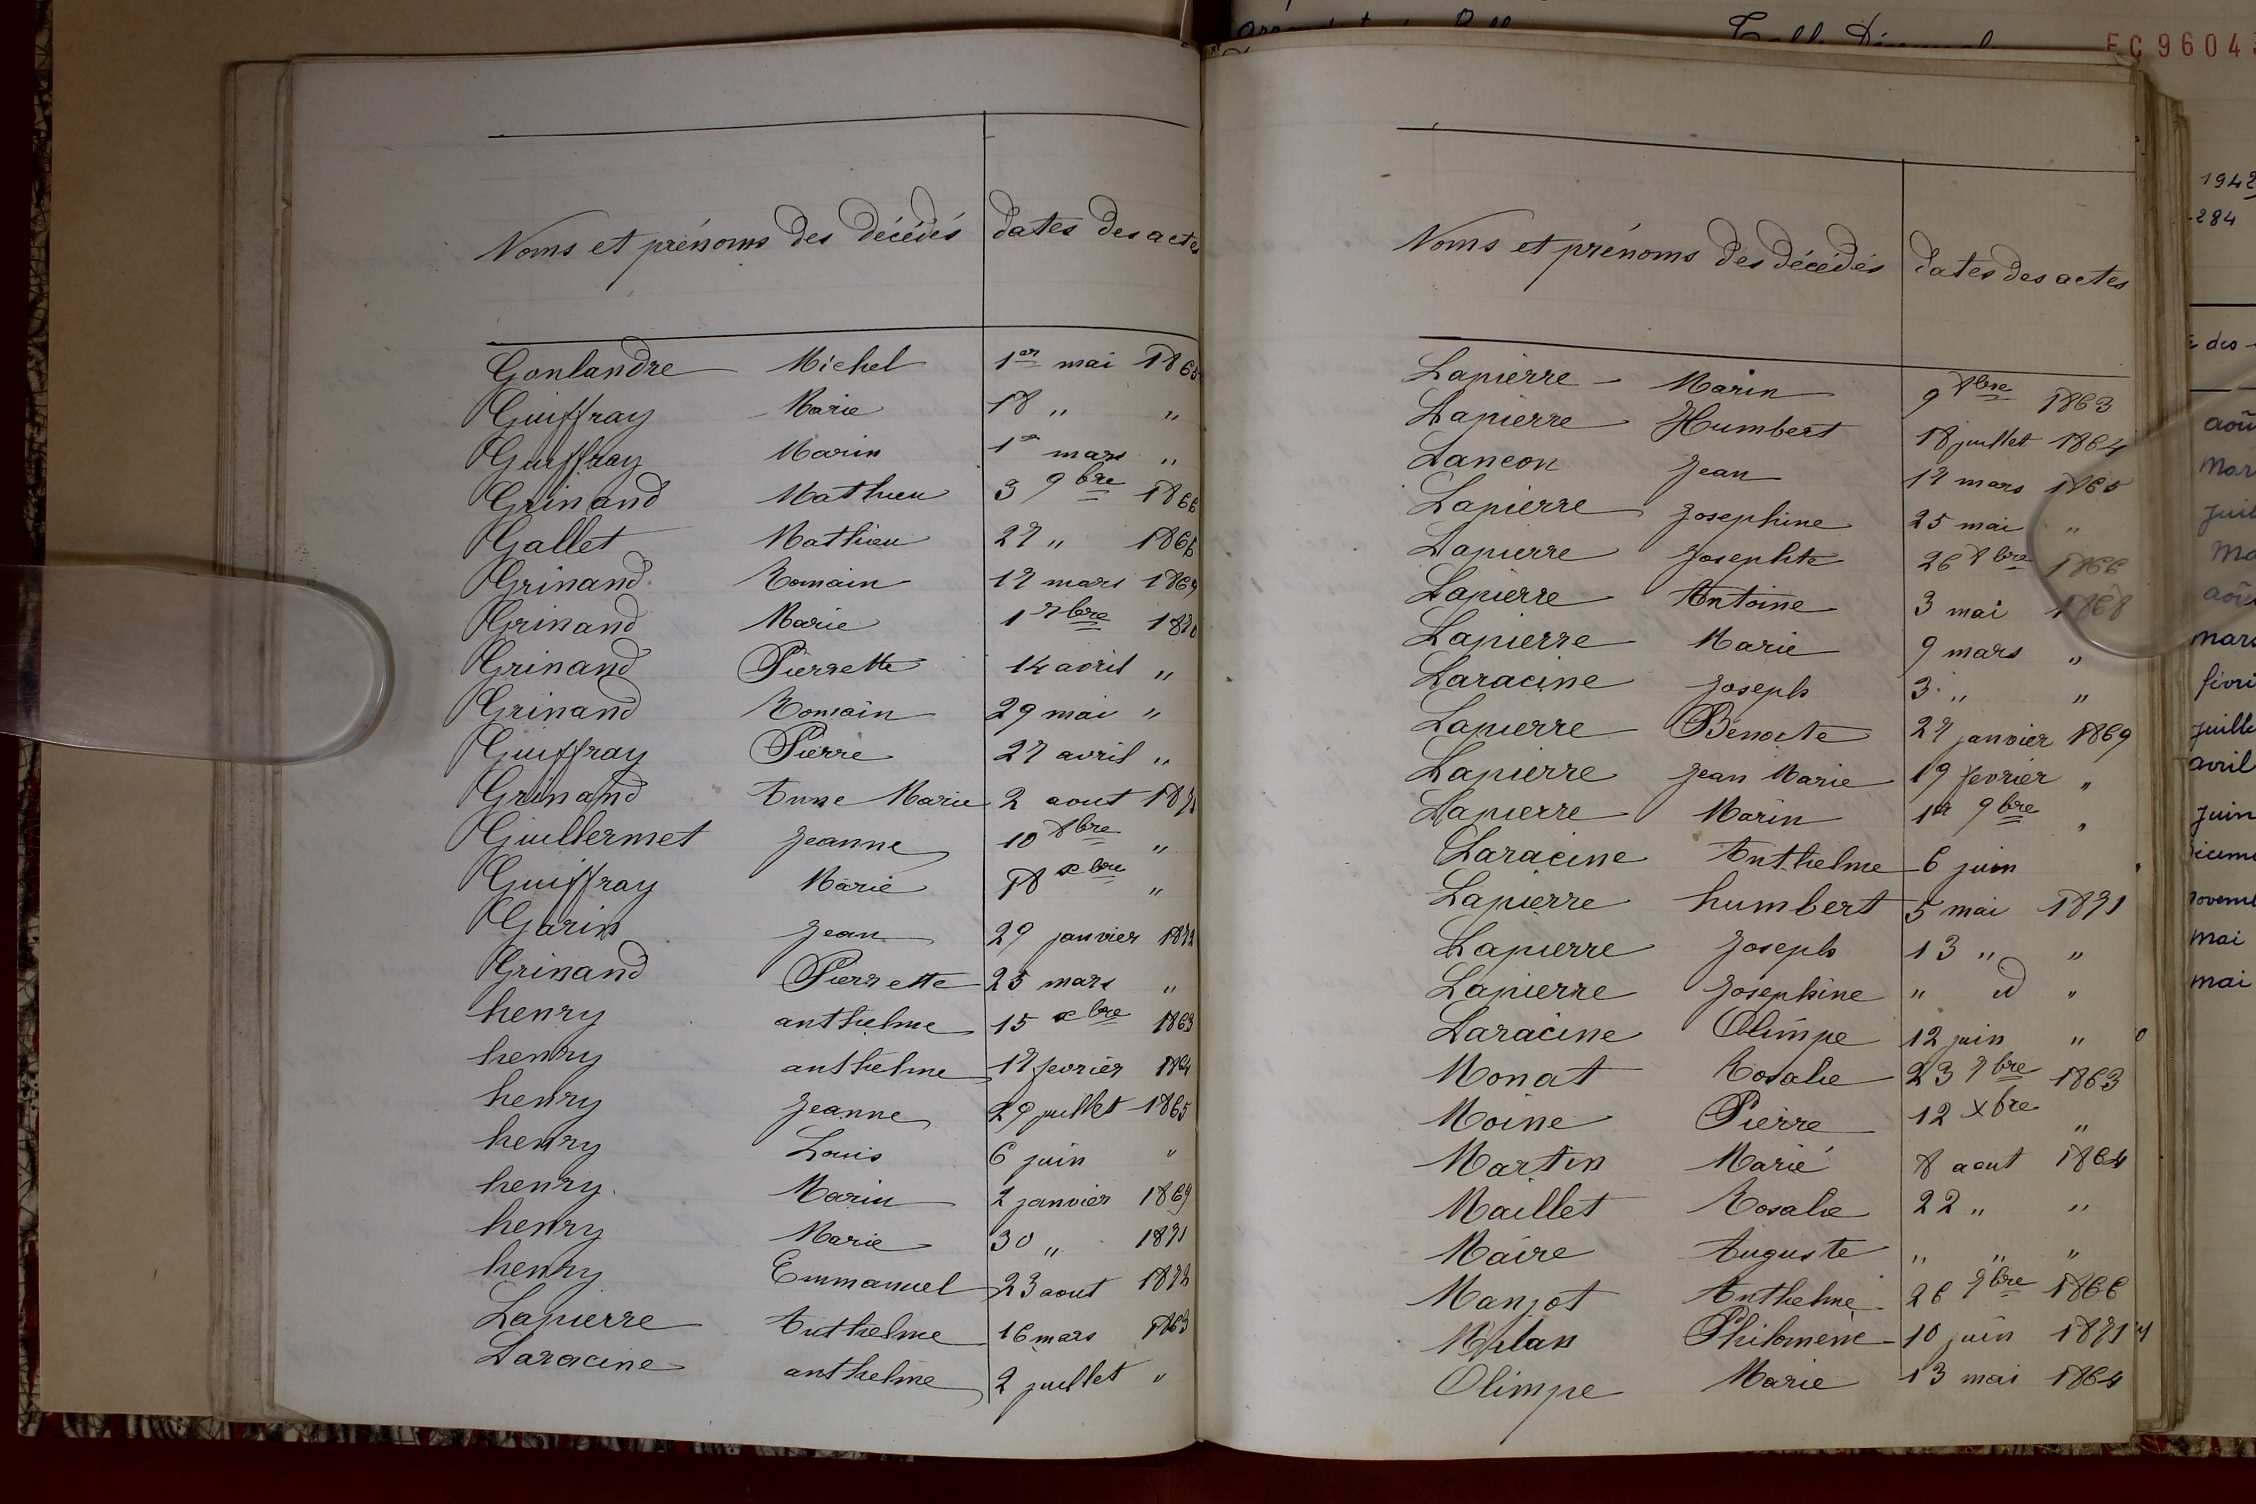 Noms et prénoms des décédés dates des actes
Gonlandre Michel 1er mai 1865
Guiffray Marie 18 " "
Guiffray Marin 1er mars "
Grinand Mathieu 3 9bre 1866
Gallet Mathieu 27 " 1866
Grinand Romain 17 mars 1869
Grinand Marie 1 7bre 1870
Grinand Pierrette 14 avril "
Grinand Romain 29 mai "
Guiffray Pierre 27 avril "
Grinand Anne Marie 2 aout 1871
Guillermet Jeanne 10 8bre "
Guiffray Marie 18 xbre "
Garin Jean 29 janvier 1872
Grinand Pierrette 25 mars "
henry anthelme 15 xbre 1863
henry anthelme 17 fevrier 1864
henry Jeanne 29 juillet 1865
henry Louis 6 juin "
henry Marin 2 janvier 1869
henry Marie 30 " 1871
henry Emmanuel 23 aout 1872
Lapierre Anthelme 16 mars 1863
Laracine anthelme 2 juillet "
Noms et prénoms des décédés dates des actes
Lapierre Marin 9 8bre 1863
Lapierre Humbert 18 juillet 1864
Lancon Jean 17 mars 1865
Lapierre Josephine 25 mai "
Lapierre Josephte 26 8bre 1866
Lapierre Antoine 3 mai 1868
Lapierre Marie 9 mars "
Laracine Joseph 3 " "
Lapierre Benoite 27 janvier 1869
Lapierre Jean Marie 19 fevrier "
Lapierre Marin 1er 9bre "
Laracine Anthelme 6 juin
Lapierre humbert 5 mai 1871
Lapierre Joseph 13 " "
Lapierre Josephine " id "
Laracine Olimpe 12 juin "
Monat Rosalie 23 7bre 1863
Moine Pierre 12 xbre "
Martin Marie 8 aout 1864
Maillet Rosalie 22 " "
Maire Auguste " " "
Manjot Anthelme 26 9bre 1866
Milan Philomène 10 juin 1871
Olimpe Marie 13 mai 1864
EC 9604
1942
284
des
aoû
mar
juil
ma
aoû
mars
févri
juille
avril
juin
mai
mai